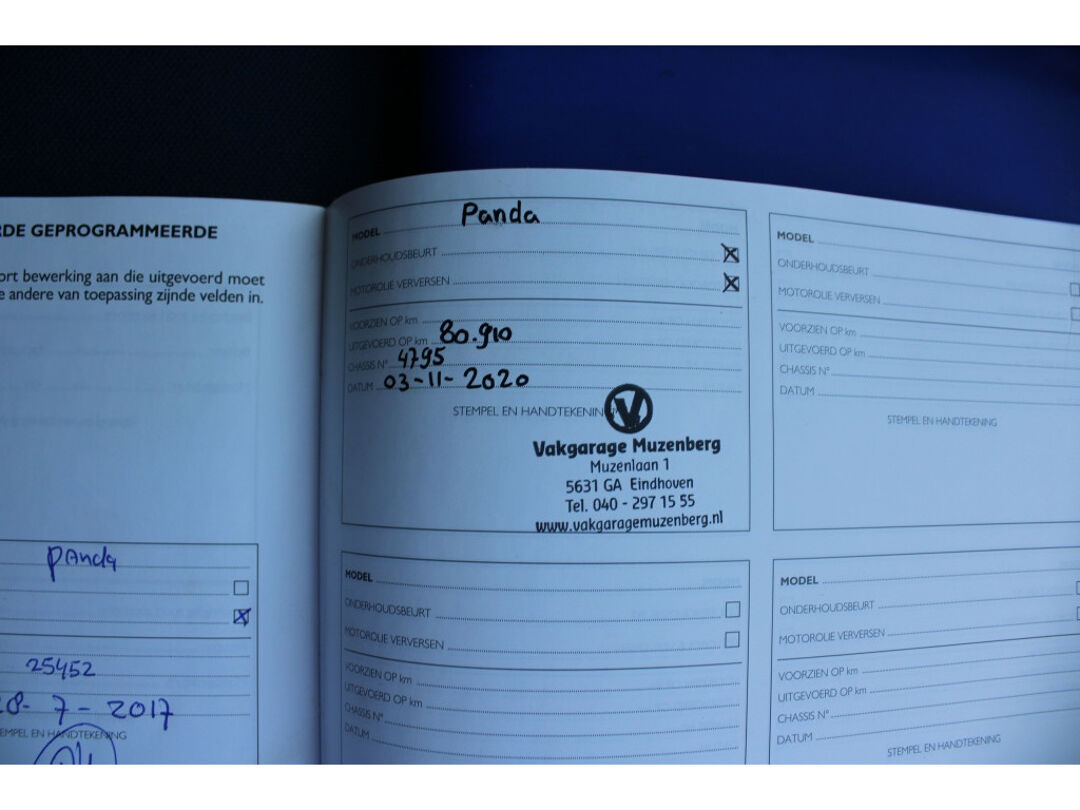 RDE GEPROGRAMMEERDE
ort bewerking aan die uitgevoerd moet
e andere van toepassing zijnde velden in.
Panda
25452
28-7-2017
EMPEL EN HANDTEKENING
MODEL Panda
ONDERHOUDSBEURT
MOTOROLIE VERVERSEN
VOORZIEN OP km
UITGEVOERD OP km 80.910
CHASSIS N° 4795
DATUM 03-11-2020
STEMPEL EN HANDTEKENING
Vakgarage Muzenberg
Muzenlaan 1
5631 GA Eindhoven
Tel. 040 - 297 15 55
www.vakgaragemuzenberg.nl
MODEL
ONDERHOUDSBEURT
MOTOROLIE VERVERSEN
VOORZIEN OP km
UITGEVOERD OP km
CHASSIS N°
DATUM
MODEL
ONDERHOUDSBEURT
MOTOROLIE VERVERSEN
VOORZIEN OP km
UITGEVOERD OP km
CHASSIS N°
DATUM
STEMPEL EN HANDTEKENING
MODEL
ONDERHOUDSBEURT
MOTOROLIE VERVERSEN
VOORZIEN OP km
UITGEVOERD OP km
CHASSIS N°
DATUM
STEMPEL EN HANDTEKENING